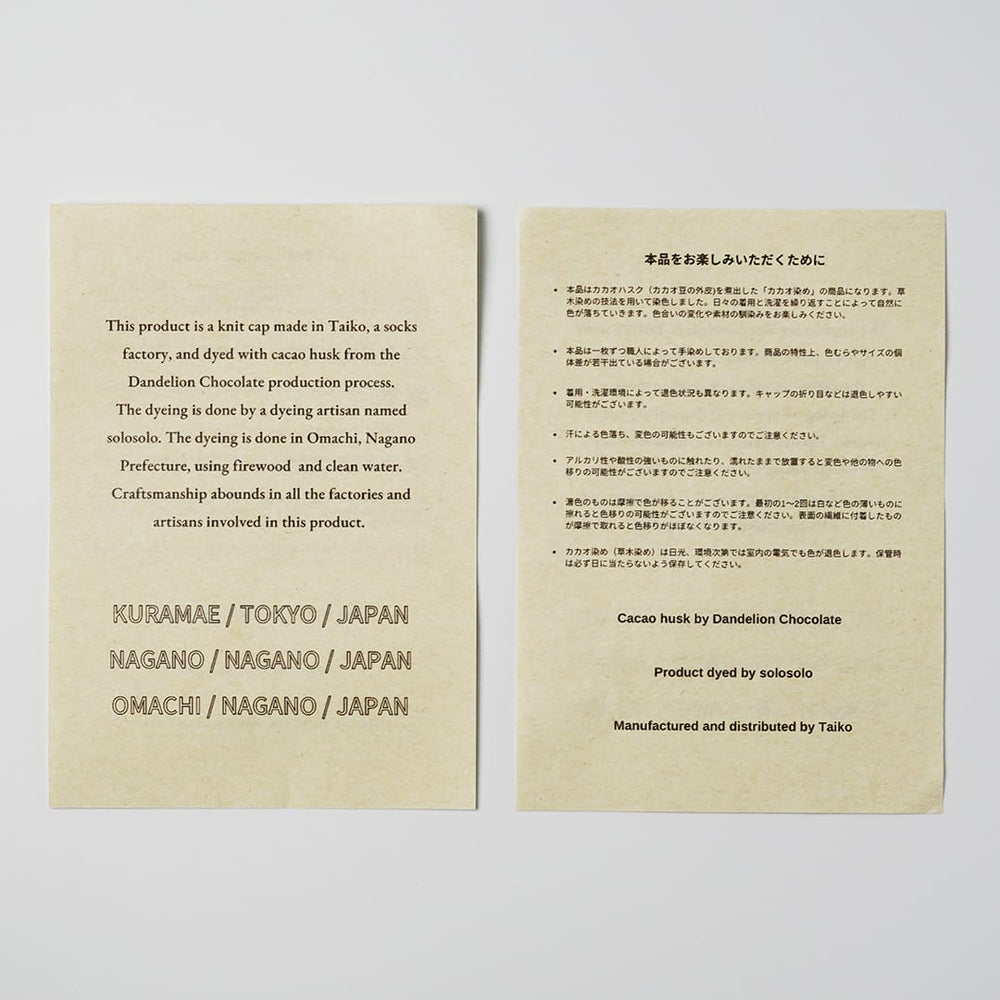 This product is a knit cap made in Taiko, a socks
factory, and dyed with cacao husk from the
Dandelion Chocolate production process.
The dyeing is done by a dyeing artisan named
solosolo. The dyeing is done in Omachi, Nagano
Prefecture, using firewood and clean water.
Craftsmanship abounds in all the factories and
artisans involved in this product.
KURAMAE / TOKYO / JAPAN
NAGANO / NAGANO / JAPAN
OMACHI / NAGANO / JAPAN
本品をお楽しみいただくために
• 本品はカカオハスク（カカオ豆の外皮)を煮出した「カカオ染め」の商品になります。草
木染めの技法を用いて染色しました。日々の着用と洗濯を繰り返すことによって自然に
色が落ちていきます。色合いの変化や素材の馴染みをお楽しみください。
• 本品は一枚ずつ職人によって手染めしております。商品の特性上、色むらやサイズの個
体差が若干出ている場合がございます。
• 着用・洗濯環境によって退色状況も異なります。キャップの折り目などは退色しやすい
可能性がございます。
• 汗による色落ち、変色の可能性もございますのでご注意ください。
• アルカリ性や酸性の強いものに触れたり、濡れたままで放置すると変色や他の物への色
移りの可能性がございますのでご注意ください。
• 濃色のものは摩擦で色が移ることがございます。最初の1〜2回は白など色の薄いものに
擦れると色移りの可能性がございますのでご注意ください。表面の繊維に付着したもの
が摩擦で取れると色移りがほぼなくなります。
• カカオ染め（草木染め）は日光、環境次第では室内の電気でも色が退色します。保管時
は必ず日に当たらないよう保存してください。
Cacao husk by Dandelion Chocolate
Product dyed by solosolo
Manufactured and distributed by Taiko